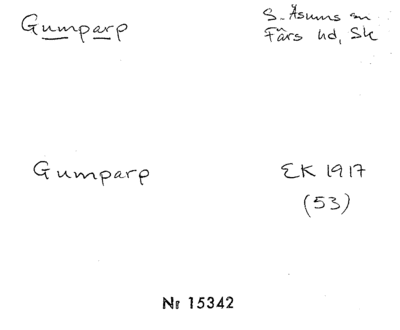 Gumparp
S. Åsums sn
Färs hd, Sk
Gumparp
EK 1917
(53)
Nr 15342